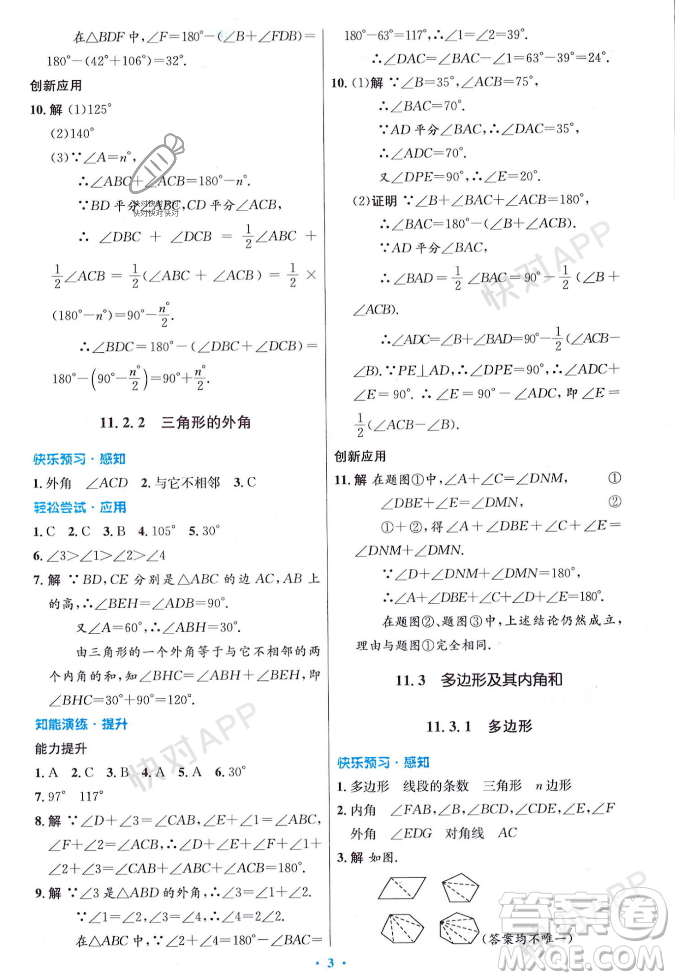 在△BDF中，∠F=180°-(∠B+∠FDB)=
180°-(42°+106°)=32°.
创新应用
10.解 (1)125°
(2)140°
(3)∵∠A=n°,
∴∠ABC+∠ACB=180°-n°.
∵BD平分∠ABC,CD平分∠ACB,
∴∠DBC+∠DCB=1/2∠ABC+
1/2∠ACB=1/2(∠ABC+∠ACB)=1/2×
(180°-n°)=90°-n°/2.
∴∠BDC=180°-(∠DBC+∠DCB)=
180°-(90°-n°/2)=90°+n°/2.
11.2.2 三角形的外角
快乐预习·感知
1.外角 ∠ACD 2.与它不相邻 3.C
轻松尝试·应用
1.C 2.C 3.B 4.105° 5.30°
6.∠3>∠1>∠2>∠4
7.解 ∵BD,CE分别是△ABC的边AC,AB上
的高,∴∠BEH=∠ADB=90°.
又∠A=60°,∴∠ABH=30°.
由三角形的一个外角等于与它不相邻的两个
内角的和,知∠BHC=∠ABH+∠BEH,即
∠BHC=30°+90°=120°.
知能演练·提升
能力提升
1.A 2.C 3.B 4.A 5.B 6.A
7.97° 117°
8.解 ∵∠D+∠3=∠CAB,∠E+∠1=∠ABC,
∠2+∠F=∠ACB,∴∠D+∠E+∠F+∠1+
∠2+∠3=∠CAB+∠ABC+∠ACB=180°.
9.解 ∵∠3是△ABD的外角,∴∠3=∠1+∠2.
∵∠1=∠2,∴∠3=2∠2.∵∠3=∠4,
∴∠4=2∠2.∴∠2+∠4=180°-∠BAC=
180°-63°=117°,∴∠2=39°.
∴∠DAC=∠BAC-∠1=63°-39°=24°.
10.(1)解 ∵∠B=35°,∠ACB=75°,
∴∠BAC=70°.
∵AD平分∠BAC,∴∠DAC=35°,
∴∠ADC=70°.
又∠DPE=90°,∴∠E=20°.
(2)证明 ∵∠B+∠BAC+∠ACB=180°,
∴∠BAC=180°-(∠B+∠ACB).
∵AD平分∠BAC,
∴∠BAD=1/2∠BAC=90°-1/2(∠B+
∠ACB).
∴∠ADC=∠B+∠BAD=90°-1/2(∠ACB-
∠B).∵PE⊥AD,∴∠DPE=90°.∴∠ADC+
∠E=90°.∴∠E=90°-∠ADC,即∠E=
1/2(∠ACB-∠B).
创新应用
11.解 在题图①中,∠A+∠C=∠DNM, ①
∠DBE+∠E=∠DMN, ②
①+②,得∠A+∠DBE+∠C+∠E=
∠DNM+∠DMN.
∵∠D+∠DNM+∠DMN=180°,
∴∠A+∠DBE+∠C+∠D+∠E=180°.
在题图②、题图③中,上述结论仍然成立,
理由与题图①完全相同.
11.3 多边形及其内角和
11.3.1 多边形
快乐预习·感知
1.多边形 线段的条数 三角形 n边形
2.内角 ∠FAB,∠B,∠BCD,∠CDE,∠E,∠F
外角 ∠EDG 对角线 AC
3.解 如图.
(答案均不唯一)
3
快对APP
快对APP
快对APP
快对快对快对
快对快对快对
答案圈